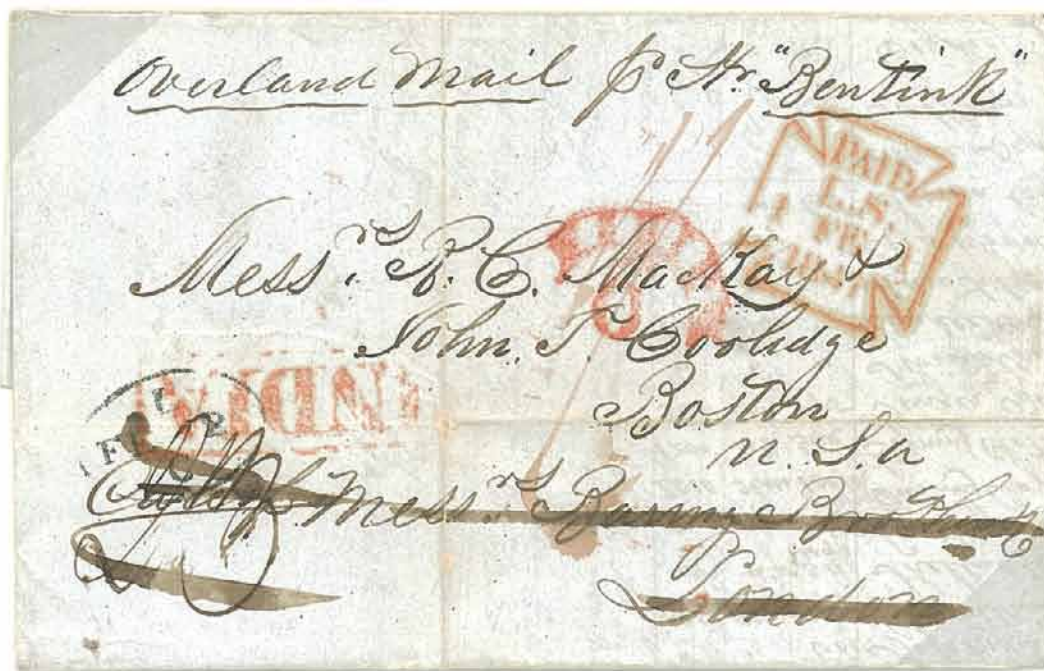 Overland Mail p Str "Bentink"
PAID
L.S.
Messrs R. C. MacKay &
John. T. Coolidge
Boston
U. S. a
INDIA
Care of Messrs Baring Brothers
London